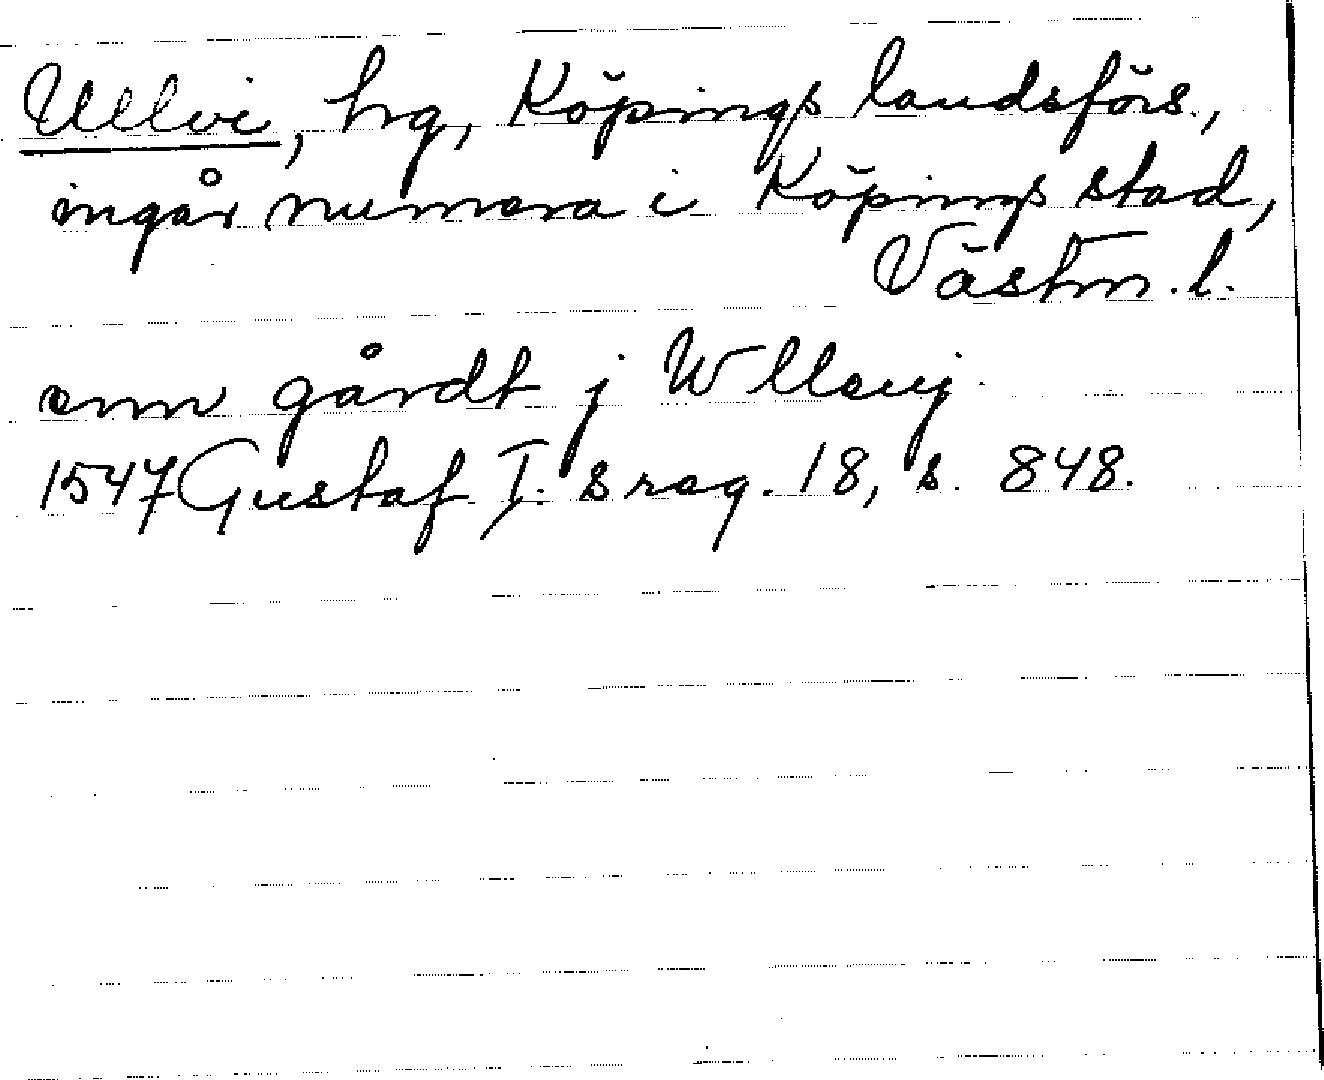 Ullvi, hg, Köpings landsförs.,
ingår numera i Köpings stad,
Västm. l.
enn gårdt j Wlleuj
1547 Gustaf I:s reg. 18, s. 848.